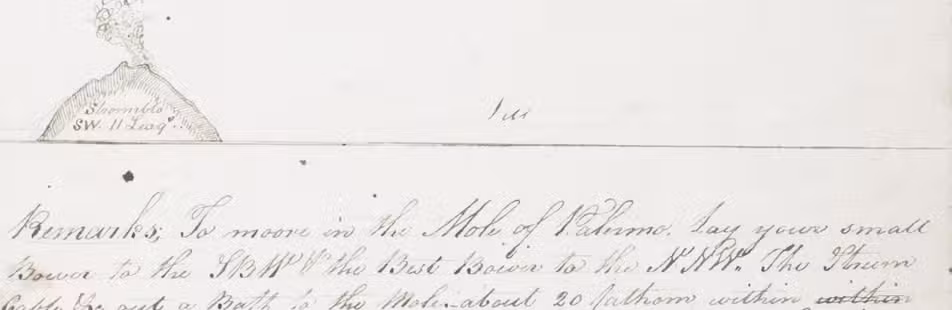 Stromblo
SW. 11 Leags.
Remarks; To moore in the Mole of Palermo. Lay your small
Bower to the SBWd & the Best Bower to the N NWd. The Stream
Cable out a Batt to the Mole about 20 fathom within within